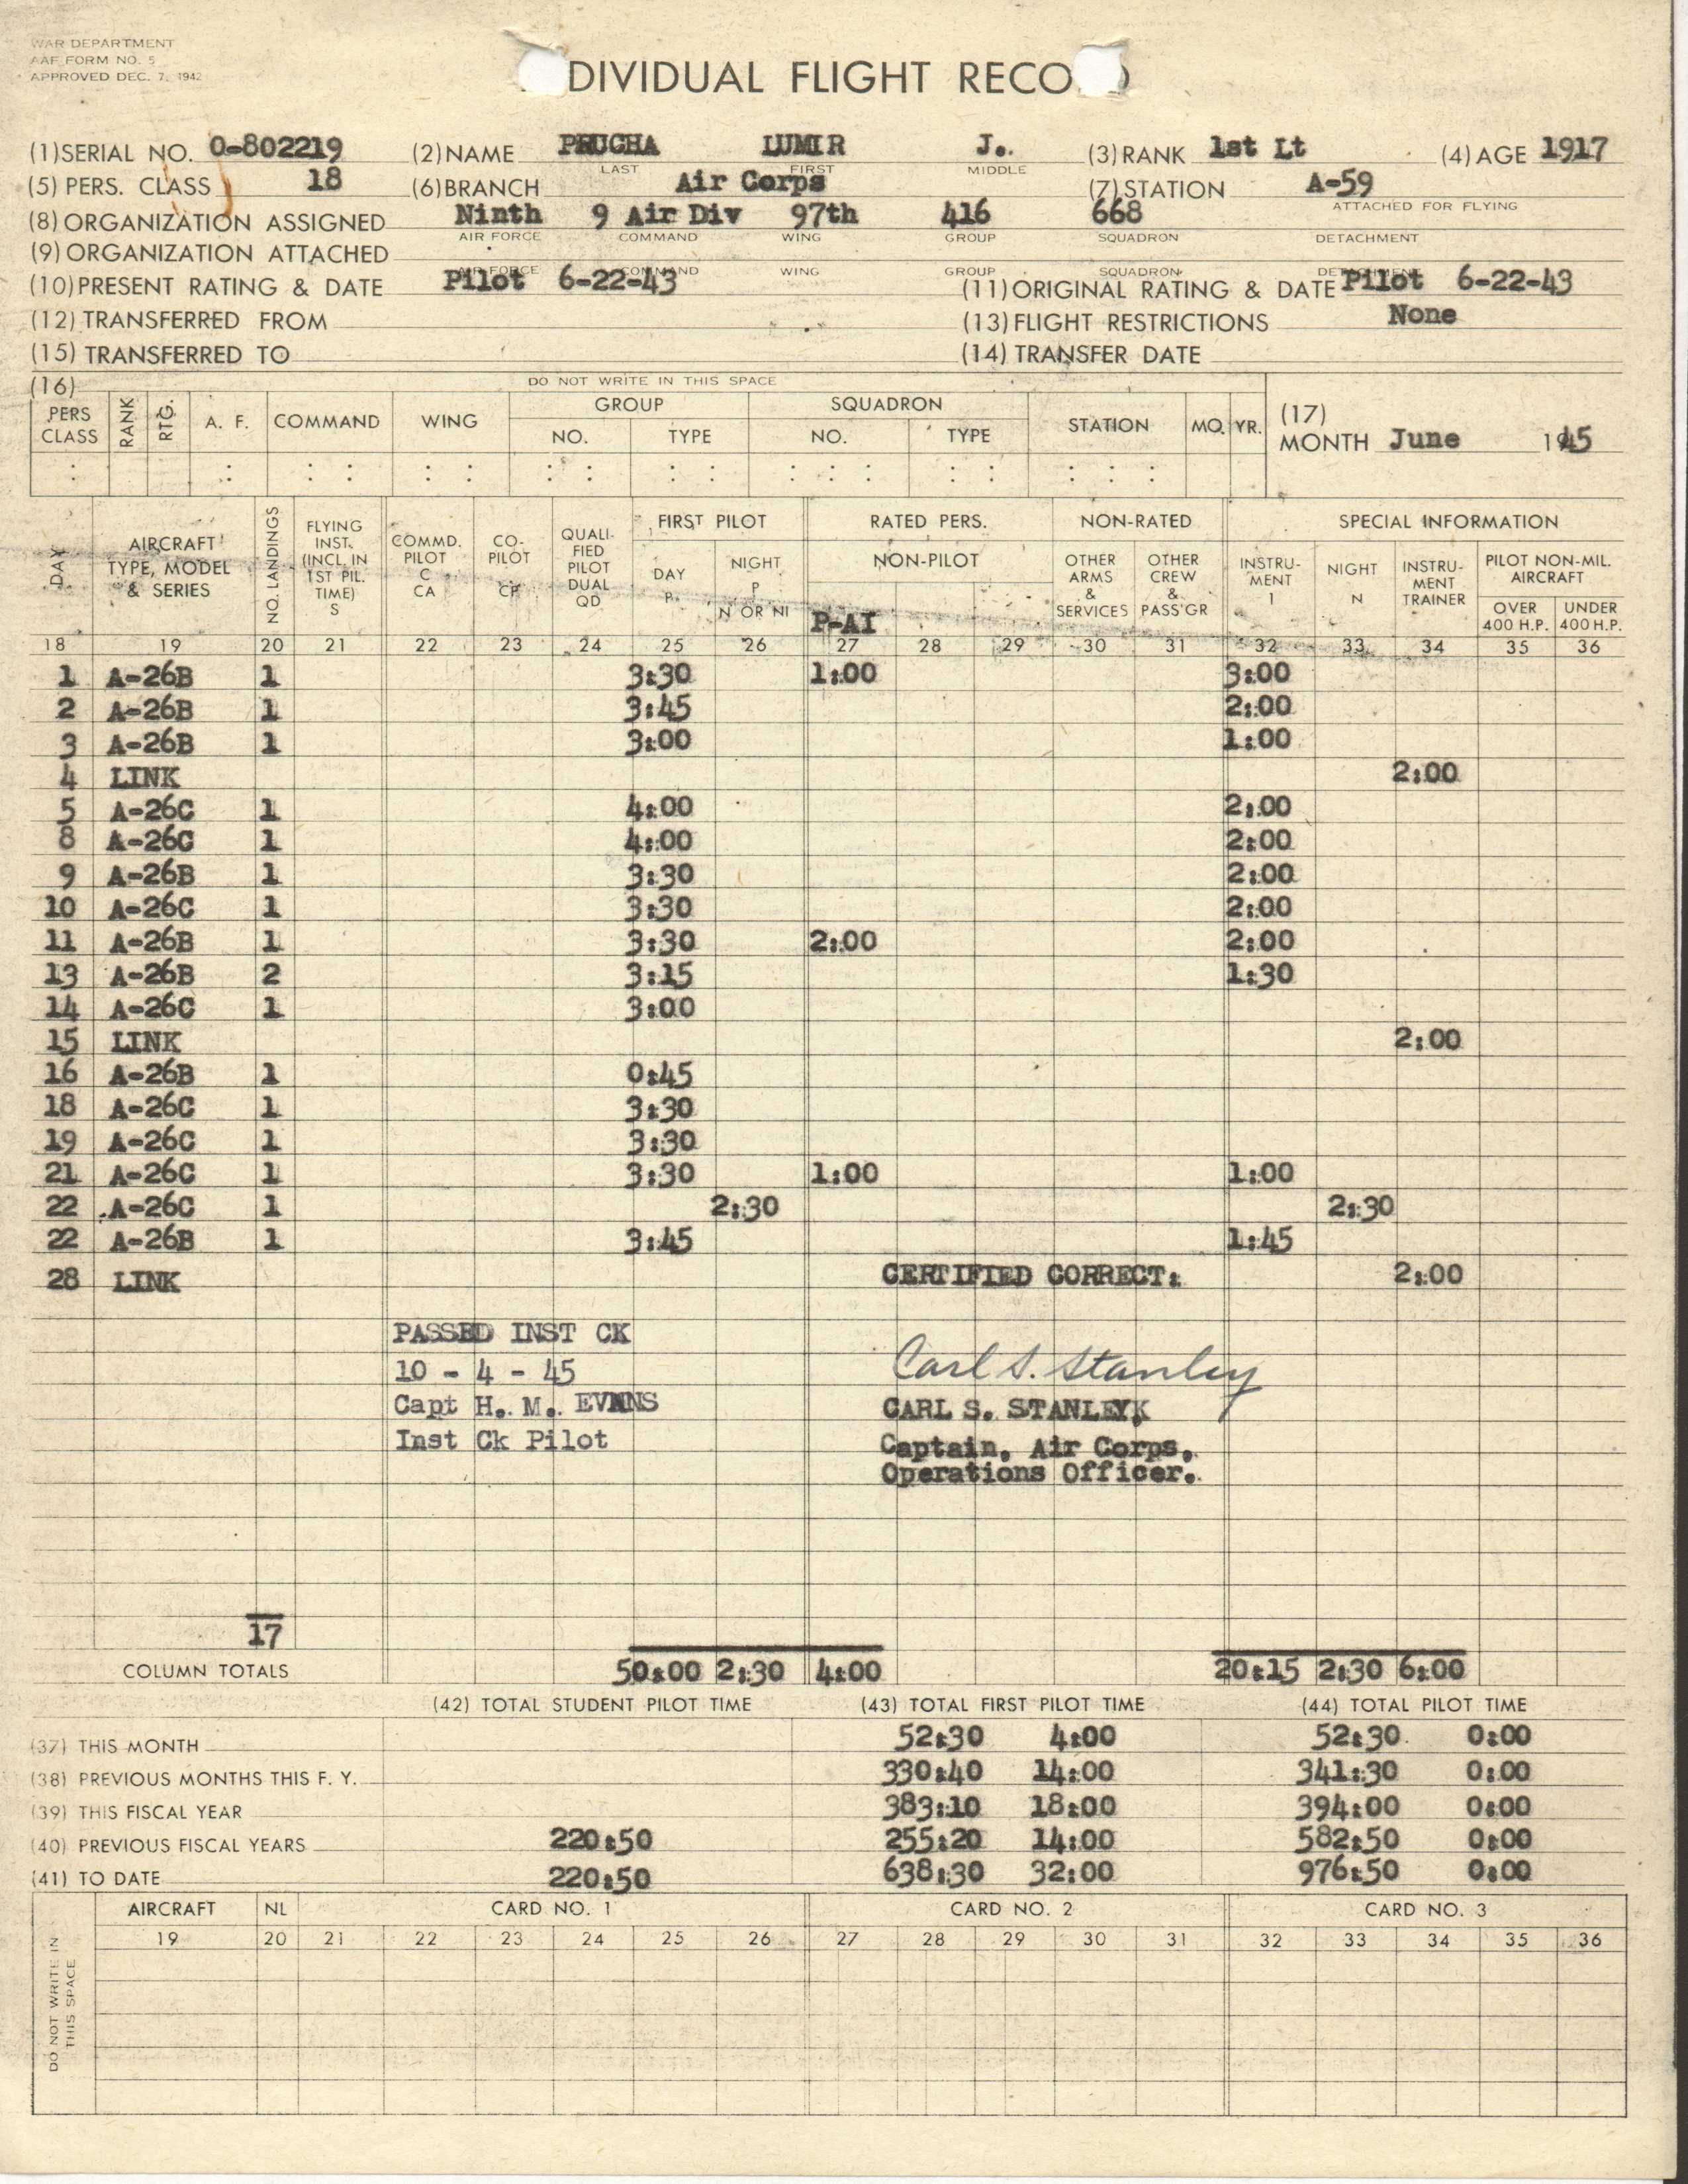 WAR DEPARTMENT
AAF FORM NO. 5
APPROVED DEC. 7, 1942
DIVIDUAL FLIGHT RECO
(1) SERIAL NO. O-802219 (2) NAME PRUCHA LUMIR J. (3) RANK 1st Lt (4) AGE 1917
LAST FIRST MIDDLE
(5) PERS. CLASS 18 (6) BRANCH Air Corps (7) STATION A-59
(8) ORGANIZATION ASSIGNED Ninth 9 Air Div 97th 416 668 ATTACHED FOR FLYING
AIR FORCE COMMAND WING GROUP SQUADRON DETACHMENT
(9) ORGANIZATION ATTACHED
AIR FORCE COMMAND WING GROUP SQUADRON DETACHMENT
(10) PRESENT RATING & DATE Pilot 6-22-43 (11) ORIGINAL RATING & DATE Pilot 6-22-43
(12) TRANSFERRED FROM (13) FLIGHT RESTRICTIONS None
(15) TRANSFERRED TO (14) TRANSFER DATE
(16) DO NOT WRITE IN THIS SPACE
PERS CLASS RANK RTG. A. F. COMMAND WING GROUP NO. TYPE SQUADRON NO. TYPE STATION MO. YR. (17) MONTH June 1945
DAY AIRCRAFT TYPE, MODEL & SERIES NO. LANDINGS FLYING INST. (INCL. IN 1ST PIL. TIME) S COMMD. PILOT C CA CO-PILOT CP QUALI-FIED PILOT DUAL QD FIRST PILOT DAY P NIGHT P N OR NI RATED PERS. NON-PILOT P-AI NON-RATED OTHER ARMS & SERVICES OTHER CREW & PASS'GR SPECIAL INFORMATION INSTRU-MENT I NIGHT N INSTRU-MENT TRAINER PILOT NON-MIL. AIRCRAFT OVER 400 H.P. UNDER 400 H.P.
18 19 20 21 22 23 24 25 26 27 28 29 30 31 32 33 34 35 36
1 A-26B 1 3:30 1:00 3:00
2 A-26B 1 3:45 2:00
3 A-26B 1 3:00 1:00
4 LINK 2:00
5 A-26C 1 4:00 2:00
8 A-26C 1 4:00 2:00
9 A-26B 1 3:30 2:00
10 A-26C 1 3:30 2:00
11 A-26B 1 3:30 2:00 2:00
13 A-26B 2 3:15 1:30
14 A-26C 1 3:00
15 LINK 2:00
16 A-26B 1 0:45
18 A-26C 1 3:30
19 A-26C 1 3:30
21 A-26C 1 3:30 1:00 1:00
22 A-26C 1 2:30 2:30
22 A-26B 1 3:45 1:45
28 LINK CERTIFIED CORRECT: 2:00
PASSED INST CK
10 - 4 - 45 Carl S. Stanley
Capt H. M. EVANS CARL S. STANLEYK
Inst Ck Pilot Captain, Air Corps,
Operations Officer.
17
COLUMN TOTALS 50:00 2:30 4:00 20:15 2:30 6:00
(42) TOTAL STUDENT PILOT TIME (43) TOTAL FIRST PILOT TIME (44) TOTAL PILOT TIME
(37) THIS MONTH 52:30 4:00 52:30 0:00
(38) PREVIOUS MONTHS THIS F. Y. 330:40 14:00 341:30 0:00
(39) THIS FISCAL YEAR 383:10 18:00 394:00 0:00
(40) PREVIOUS FISCAL YEARS 220:50 255:20 14:00 582:50 0:00
(41) TO DATE 220:50 638:30 32:00 976:50 0:00
DO NOT WRITE IN THIS SPACE AIRCRAFT NL CARD NO. 1 CARD NO. 2 CARD NO. 3
19 20 21 22 23 24 25 26 27 28 29 30 31 32 33 34 35 36